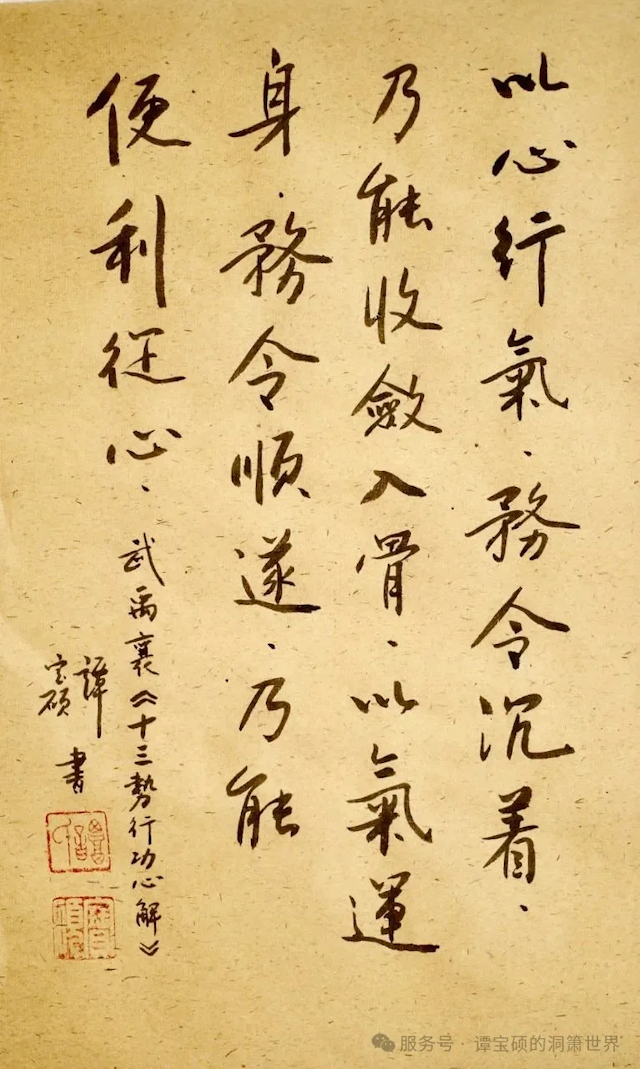 以心行氣．務令沉着．
乃能收斂入骨．以氣運
身．務令順遂．乃能
便利從心．
武禹襄《十三勢行功心解》
譚
宝硕
書
服务号 · 谭宝硕的洞箫世界